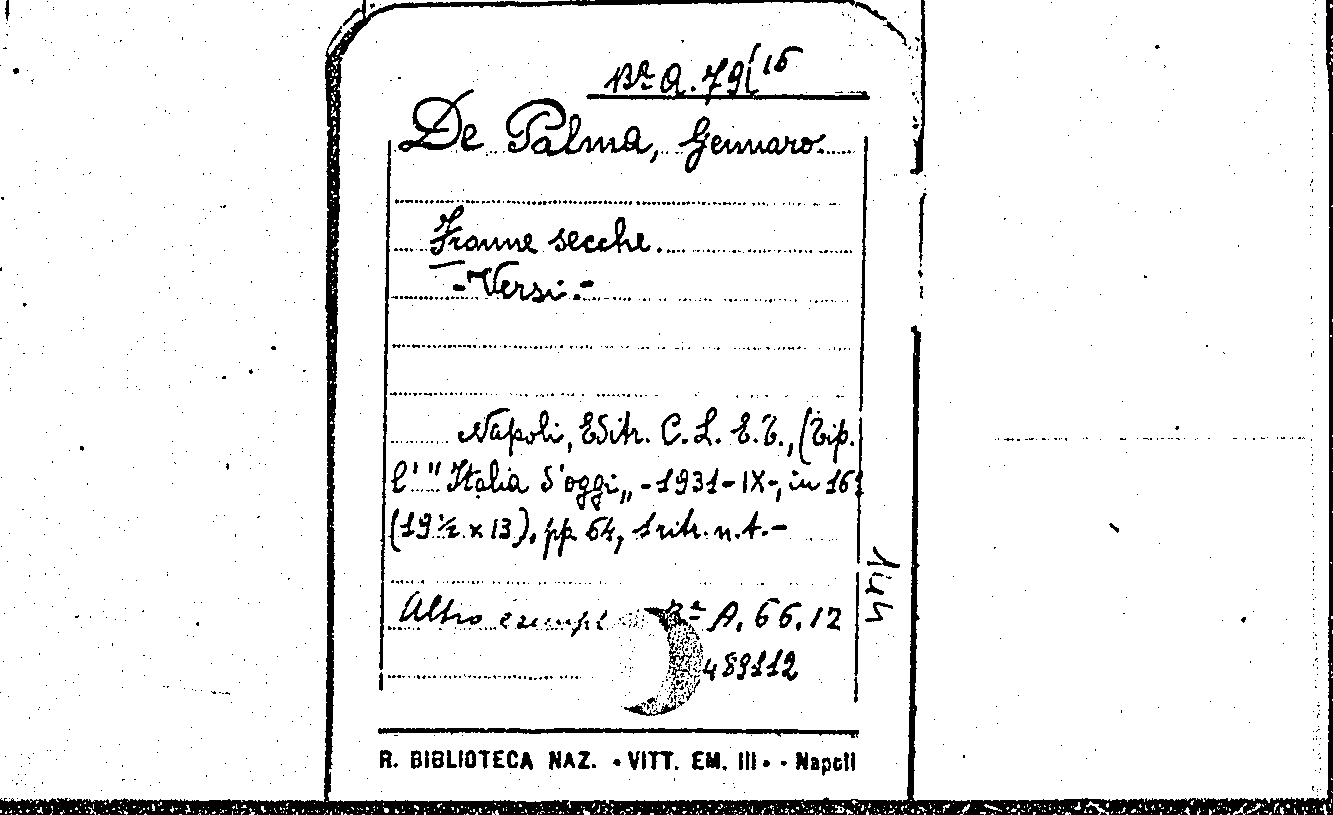 Bª A. 79(15
De Palma, Gennaro.
Fronne secche.
-Versi.-
Napoli, Editr. C. L. E. T., (Tip.
l'"Italia d'oggi„ -1931-IX-, in 16º
(19½ x 13), pp 64, 1 ritr. n.t.-
Altro esempl Bª A. 66.12
489112
144
R. BIBLIOTECA NAZ. • VITT. EM. III • - Napoli